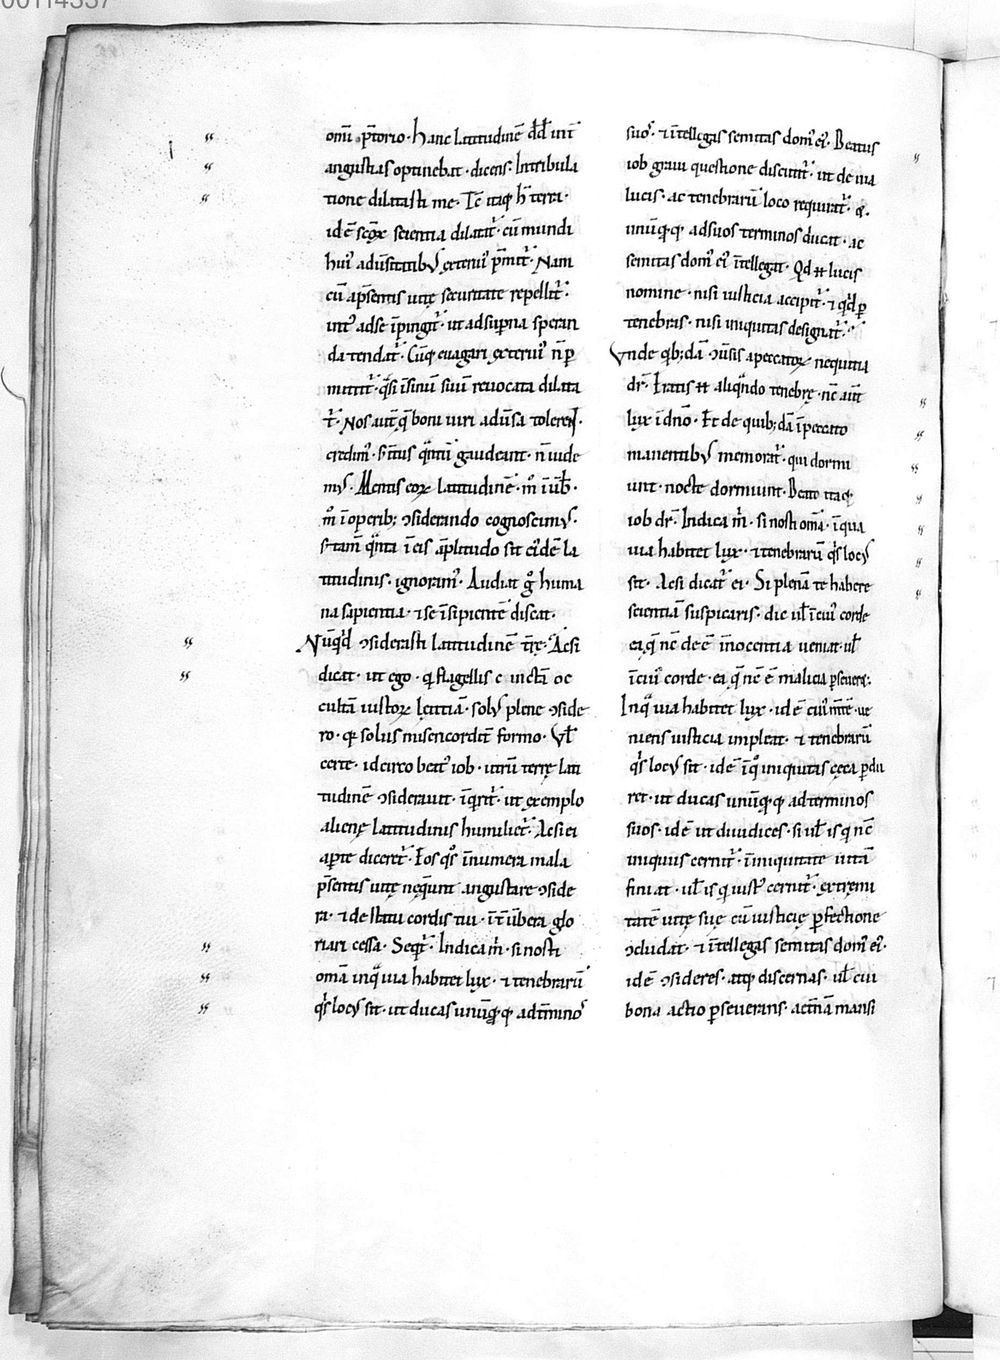 00114337
omī p̄torio. Hanc latitudinē dd̄ int̄
angustias optinebat. dicens. In tribula
tione dilatasti me. Tē itaq; h̄ terra.
id ē scōꝝ scientia dilatat᷑. cū mundi
hui᷒ adūsitatib᷒ exteri᷒ p̄mit᷑. Nam
cū ap̄sentis uitę securitate repellit᷑.
int᷒ ad se īpingit᷑. ut ad supna speran
da tendat᷑. Cūq; euagari exteri᷒ n̄ p̱
mittit᷑. q̄si ī sinū suū reuocata dilata
t᷑. Nos aut̄ q̄ boni uiri aduersa tolerent.
credim᷒. s; intus q̄ntū gaudeant. n̄ uide
m᷒. Mentis eoꝝ latitudinē. m̊ ī uƀ.
m̊ ī operib; ɔsiderando cognoscim᷒.
s; tam̄ q̄nta ī eis āplitudo sit ei᷒dē la
titudinis. ignoram᷒. Audiat g̊ huma
na sapientia. ⁊ se īsipientē discat.
Nūq̇d ɔsiderasti latitudinē t̄rę. Ac si
dicat. ut ego. q̇ flagellis c inctā oc
cultā iustoꝝ lętitiā. sol᷒ plene ɔside
ro. q̇ solus misericordit̄ formo. Vł
certe. idcirco beat᷒ iob. utrū terrę lati
tudinē ɔsiderauit. īq̇rit᷑. ut exemplo
alienę latitudinis humiliet᷑. Ac si ei
aperte diceret᷑. Eos q̊s īnumera mala
p̄sentis uitę neq̄unt angustare ɔside
ra. ⁊ de statu cordis tui. īt̄ ūbera glo
riari cessa. Seq̇t᷑. Indica m̄. si nosti
om̄a in q̄ uia habitet lux. ⁊ tenebrarū
q̇s loc᷒ sit. ut ducas unūq̇dq; ad t̄mino᷒
suo᷒. ⁊ ītellegas semitas dom᷒ ei᷒. Beatus
iob graui questione discutit᷑. ut de uia
lucis. ac tenebrarū loco requirat᷑. q̇.
unūq̇q; ad suos terminos ducat. ac
semitas dom᷒ ei᷒ ītellegat. Qd̄ ĕ lucis
nomine. nisi iusticia accipit᷑. ⁊ q̇d p̱
tenebras. nisi iniquitas designat᷑.
Vnde q̇b;dā ɔuersis a peccatoꝝ nequitia
dr̄. Eratis aliq̄ndo tenebrę. nc̄ aut̄
lux ī dn̄o. Et de quib;dā ī peccato
manentib᷒ memorat᷑. qui dormi
unt. nocte dormiunt. Beato itaq;
iob dr̄. Indica m̄. si nosti om̄a. ī qua
uia habitet lux. ⁊ tenebrarū q̇s loc᷒
sit. Ac si dicat᷑ ei. Si plenā te habere
scientiā suspicaris. dic uł ī cui᷒ corde
ea q̄ nc̄ deē īnocentia ueniat. uł
ī cui᷒ corde. ea q̄ nc̄ ē malicia p̱seuere᷑.
In q̄ uia habitet lux. id ē cui᷒ m̄tē. ue
niens iusticia impleat. ⁊ tenebrarū
q̇s loc᷒ sit. id ē ī q̊ iniquitas ceca p̱du
ret. ut ducas unūq̇q; ad terminos
suos. id ē ut diiudices. si uł is q̇ nc̄
iniquus cernit᷑. ī iniquitate uitā
finiat. uł is q̇ iust᷒ cernit᷑. extremi
tatē uitę suę cū iusticię p̱fectione
ɔcludat. ⁊ ītellegas semitas dom᷒ ei᷒.
id ē ɔsideres. atq; discernas. uł cui
bona actio p̱seuerans. aet̄nā mansi